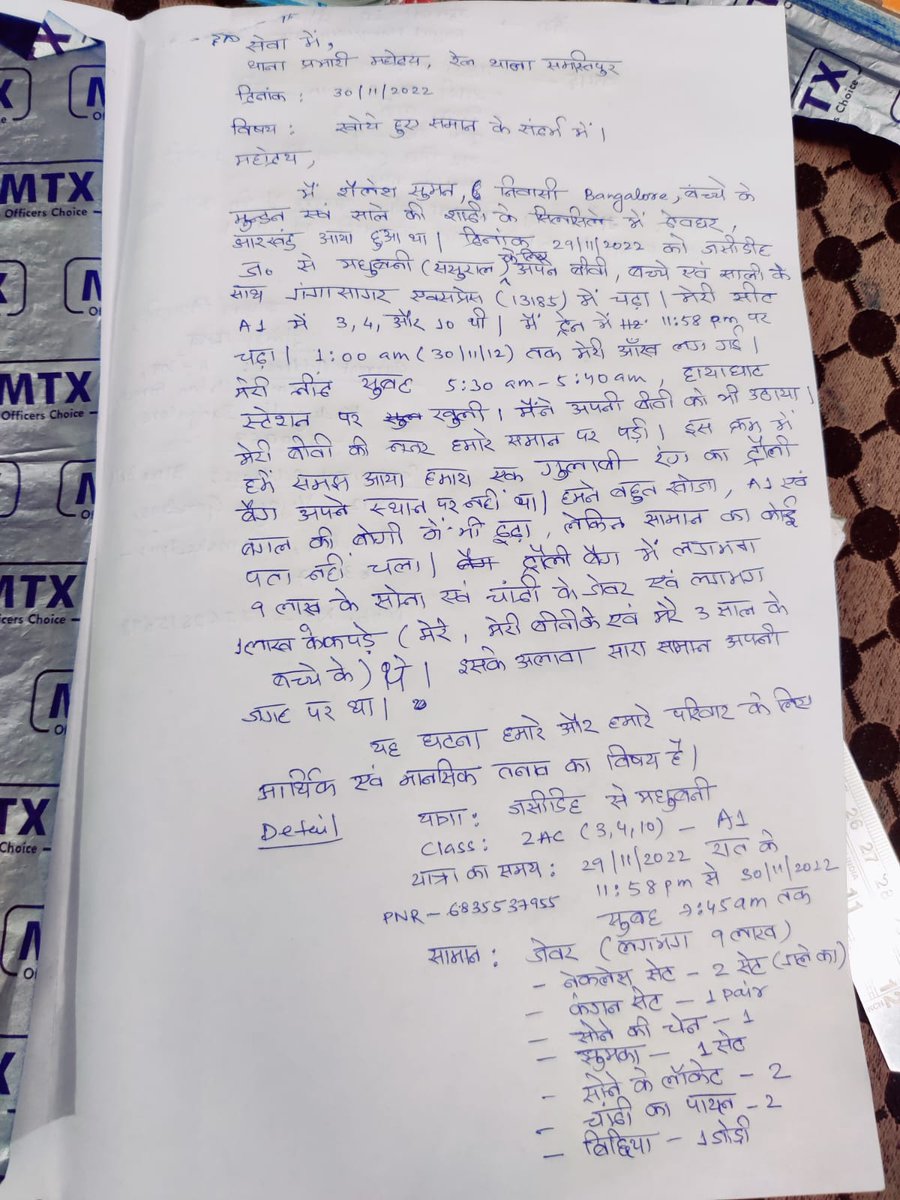 सेवा में,
थाना प्रभारी महोदय, रेल थाना समस्तिपुर
दिनांक : 30/11/2022
विषय : खोये हुए समान के संदर्भ में।
महोदय,
मैं शैलेश सुमन, निवासी Bangalore, बच्चे के
मुन्डन एवं साले की शादी के सिलसिले में देवघर,
झारखंड आया हुआ था। दिनांक 29/11/2022 को जसीडीह
ज॰ से मधुबनी (ससुराल) के लिए अपने बीवी, बच्चे एवं साली के
साथ गंगासागर एक्सप्रेस (13185) में चढ़ा। मेरी सीट
A1 में 3, 4, और 10 थी। मैं ट्रेन में 11:58 pm पर
चढ़ा। 1:00 am (30/11/12) तक मेरी आँख लग गई।
मेरी नींद सुबह 5:30 am - 5:40 am, हायाघाट
स्टेशन पर खुली। मैंने अपनी बीवी को भी उठाया।
मेरी बीवी की नजर हमारे समान पर पड़ी। इस क्रम में
हमें समझ आया हमारा एक गुलाबी रंग का ट्रॉली
बैग अपने स्थान पर नहीं था। हमने बहुत खोजा, A1 एवं
बगल की बोगी में भी ढूढ़ा, लेकिन सामान का कोई
पता नहीं चला। ट्रॉली बैग में लगभग
9 लाख के सोना एवं चांदी के जेवर एवं लगभग
1 लाख के कपड़े (मेरे, मेरी बीवी के एवं मेरे 3 साल के
बच्चे के) थे। इसके अलावा सारा समान अपनी
जगह पर था।
यह घटना हमारे और हमारे परिवार के लिए
आर्थिक एवं मानसिक तनाव का विषय है।
Detail यात्रा : जसीडिह से मधुबनी
Class : 2AC (3,4,10) - A1
यात्रा का समय : 29/11/2022 रात के
11:58 pm से 30/11/2022
PNR - 6835537955 सुबह 7:45 am तक
सामान : जेवर (लगभग 9 लाख)
- नेकलेस सेट - 2 सेट (गले का)
- कंगन सेट - 1 pair
- सोने की चेन - 1
- झुमका - 1 सेट
- सोने के लॉकेट - 2
- चांदी का पायल - 2
- बिछिया - 1 जोड़ी
MTX
Officers Choice
MTX
Officers Choice
MTX
Officers Choice
MTX